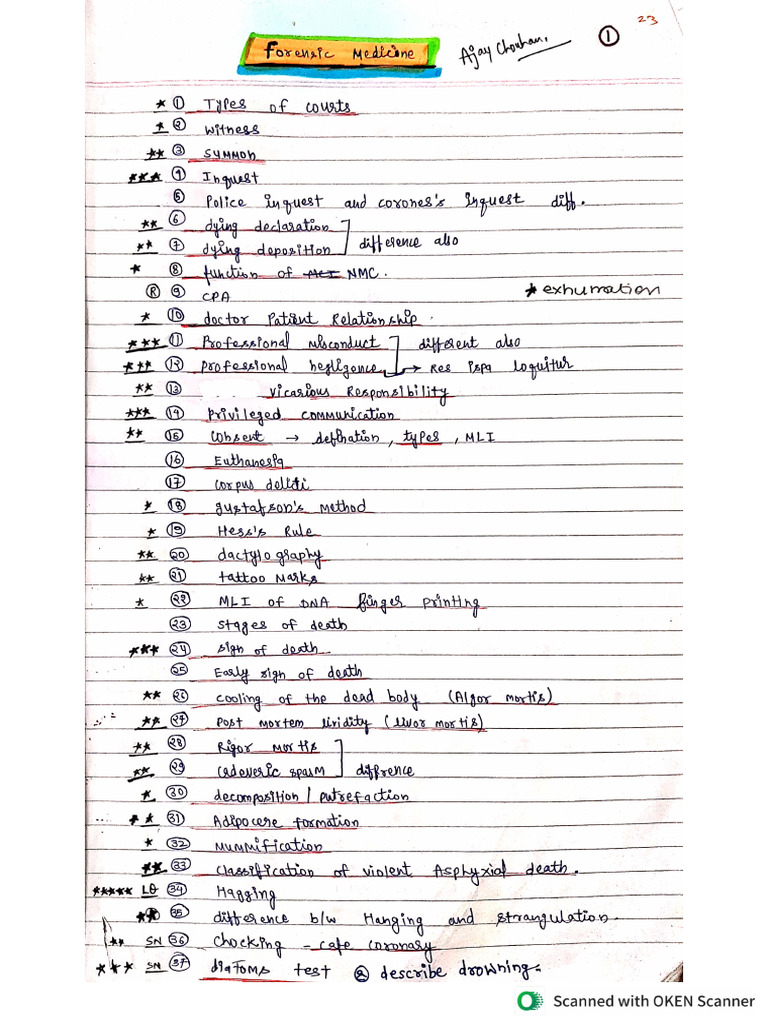 23
Forensic Medicine
Ajay Chouhan.
①
* ① Types of courts
* ② witness
** ③ symmon
*** ④ Inquest
⑤ Police inquest and corones's inquest diff.
** ⑥ dying declaration
** ⑦ dying deposition ] difference also
* ⑧ function of MCI NMC.
Ⓡ ⑨ CPA
* exhumation
* ⑩ doctor Patient Relationship.
*** ⑪ Professional misconduct ] different also
*** ⑫ Professional negligence → Res ispa loquitur
** ⑬ vicarious Responsibility
*** ⑭ Privileged communication
** ⑮ Consent → defination, types, MLI
⑯ Euthanesia
⑰ corpus delicti
* ⑱ gustafson's method
* ⑲ Hess's Rule
** ⑳ dactylography
** ㉑ tattoo Marks
* ㉒ MLI of DNA finger printing
㉓ stages of death
*** ㉔ sign of death
㉕ Early sign of death
** ㉖ cooling of the dead body (Algor mortis)
** ㉗ Post mortem lividity (livor mortis)
** ㉘ Rigor mortis
** ㉙ cadeveric spasm ] diffrence
* ㉚ decomposition / putrefaction
** ㉛ Adipocere formation
* ㉜ Mummification
** ㉝ classification of violent Asphyxial death.
***** LQ ㉞ Hagging
㉟ difference b/w Hanging and strangulation.
** SN ㊱ chocking - cafe coronary
*** SN ㊲ diatoms test describe drowning.
Scanned with OKEN Scanner